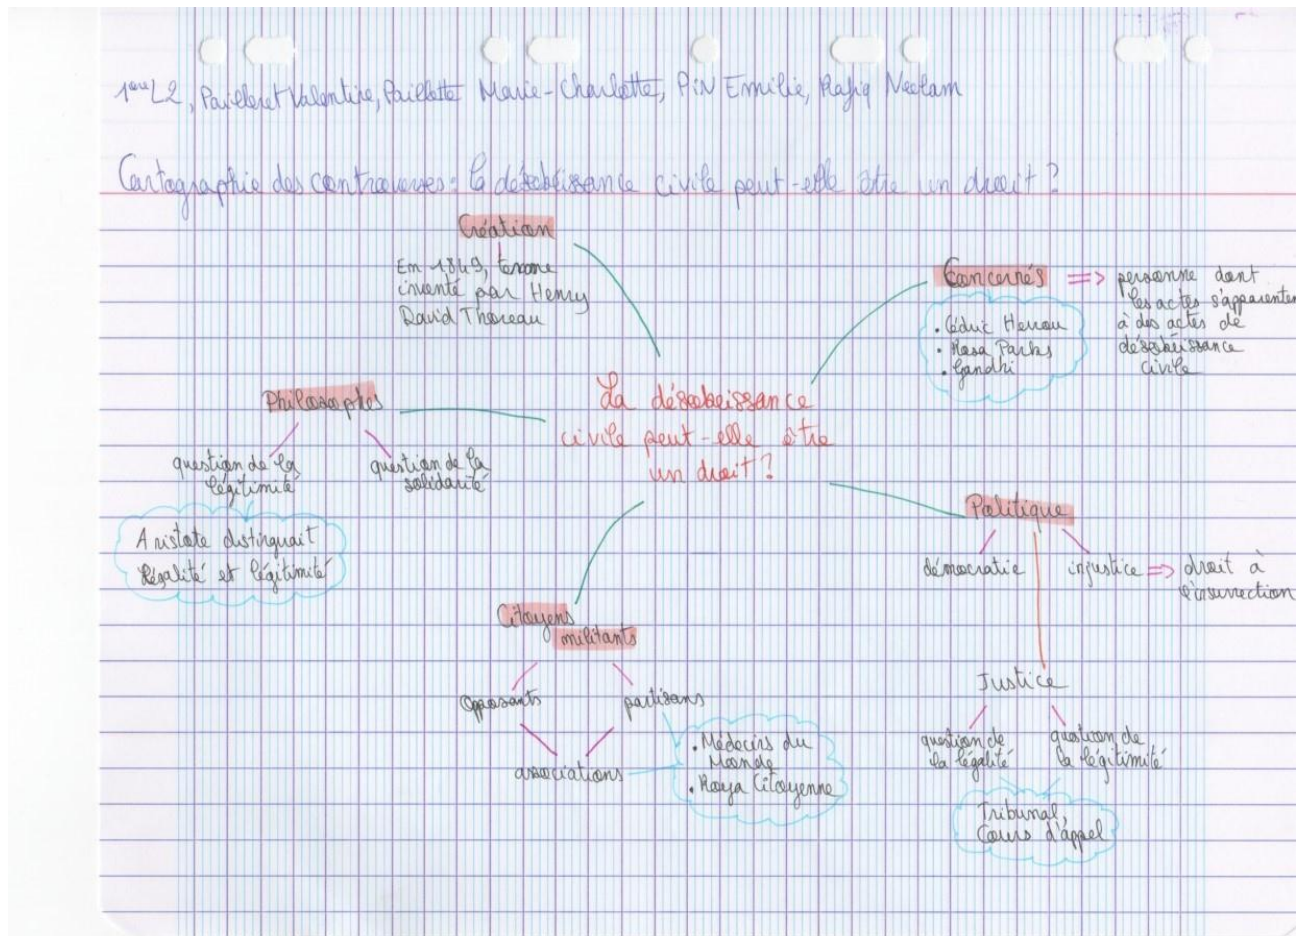 1ère L2, Pailleret Valentine, Paillette Marie-Charlotte, PIN Emilie, Rafiq Neelam
Cartographie des controverses : la désobéissance civile peut-elle être un droit ?
Création
En 1849, terme
inventé par Henry
David Thoreau
Concernés => personne dont
les actes s'apparentent
à des actes de
désobéissance
civile
• Cédric Herrou
• Rosa Parks
• Gandhi
La désobeissance
civile peut-elle être
un droit ?
Philosophes
question de la
légitimité
question de la
solidarité
Aristote distinguait
légalité et légitimité
Politique
démocratie
injustice => droit à
l'insurrection
Citoyens
militants
Opposants
partisans
associations
• Médecins du
Monde
• Roya Citoyenne
Justice
question de
la légalité
question de
la légitimité
Tribunal,
Cours d'appel